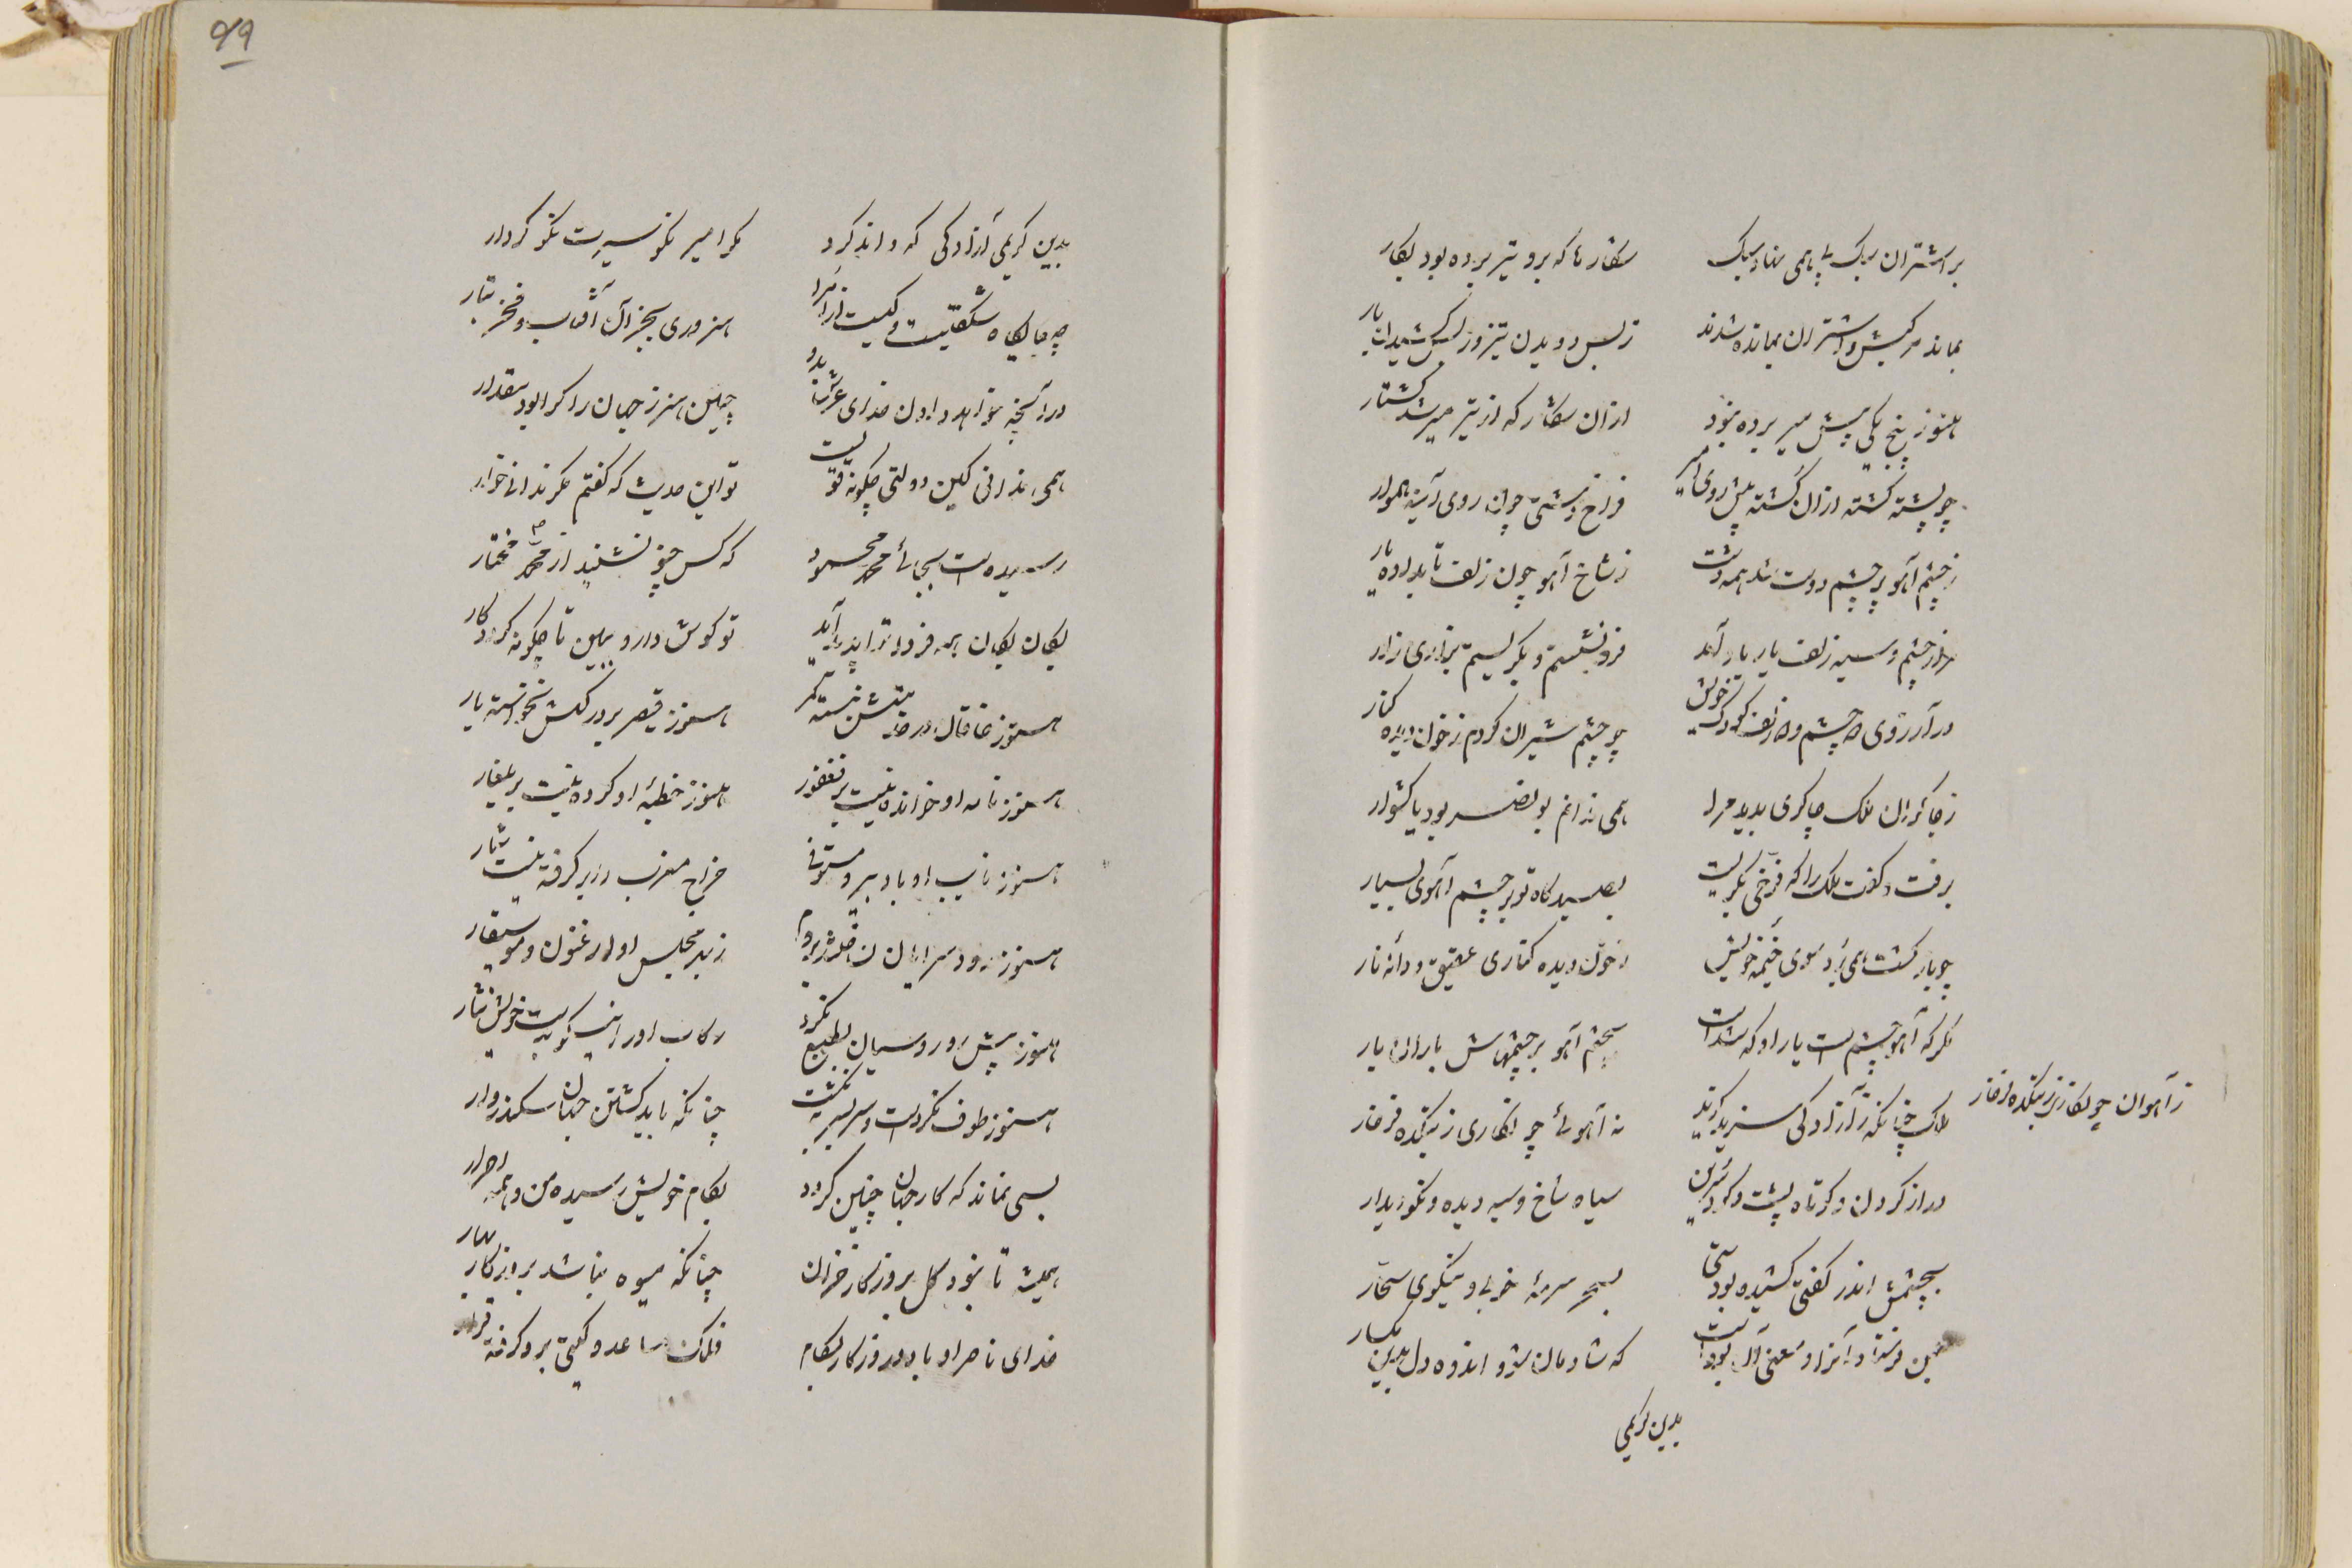 بر اشتران سبک پی همی نهاد سبک
شکارها که برو تیر برده بود بکار
بماند سرکیش و اشتران بمانده شدند
ز بس دویدن تیز و ز بس کشیدن بار
هنوز پنج یکی پیش میر برده نبود
ازان شکار که از تیر میر شد کشتار
چو پشته پشته ازان کشته پیش روی امیر
فراخ دشتی چون روی آینه هموار
ز چشم آهو پر چشم دوست شد همه دشت
ز شاخ آهو چون زلف تابداده یار
مرا ز چشم و سیه زلف یار یاد آمد
فرو نشستم و بگریستم بزاری زار
در آرزوی دو چشم و دو زلف کودک خویش
چو چشم شیران کردم ز خون دیده کنار
ز چاکران ملک چاکری بدید مرا
همی ندانم بونصر بود یا کشوار
برفت و گفت ملک را که فرخی بگریست
بصیدگاه تو بر چشم آهوی بسیار
چو بازگشت همی زد سوی خیمه خویش
ز خون دیده کناری عقیق و دانه نار
مگر که آهو چشمست یار او که شدست
بچشم آهو بر چشمهاش باران بار
ملک چنانکه ز آزادگی سزید گزید
نه آهوئی چو نگاری ز بتکده فرخار
ز آهوان چو نگارین ز بتکده فرخار
دراز گردن و کوتاه پشت و گرد سرین
سیاه شاخ و سیه دیده و نکو دیدار
بچشمش اندر گفتی کشیده بودستی
بسحر سرمه خوبی و نیکوی سحار
بمن فرستاد آنرا و معنی آن بودست
که شادمان شو و اندوه دل بدین بگسار
بدین کریمی
99
بدین کریمی و آزادگی که داند کرد
مگر امیر نکو سیرت نکو کردار
چه جایگاه شگفتیست و کیست از امرا
سزوری بجز آن آفتاب و فخر تبار
در آنچه خواهد دادن خدای عرش بدو
چنین هنر ز جهان را کرا بود مقدار
همی ندانی کاین دولتی چگونه قویست
تو این حدیث که گفتم مگر ندانی خوار
رسیده است بجائی محمد محمود
که کس چنو نشنید از محمد مختار
یکان یکان همه فردا ترا پدید آید
تو گوش دار و ببین تا چگونه گردد کار
هنوز خاقان در خدمتش نبسته کمر
هنوز قیصر بر درگهش نخواسته بار
هنوز نامه او خوانده نیست بر فغفور
هنوز خطبه او کرده نیست بر بلغار
هنوز نایب او باد ببرد مستوفی
خراج مغرب را بر گرفته نیست شمار
هنوز رود سرایان نساختند بروم
ز بهر مجلس او ارغنون و موسیقار
هنوز پیش رو روسیان بطبع نکرد
رکاب او را نیکو بدست خویش نثار
هنوز طوف نکردست و سر بسر نگشت
چنانکه باید گشتن جهان سکندروار
بسی نماند که کار جهان چنین گردد
بکام خویش رسیده من و همه احرار
همیشه تا نبود گل بروزگار خزان
چنانکه میوه نباشد بروزگار بهار
خدای ناصر او باد و روزگار بکام
فلک مساعد و گیتی برو گرفته قرار